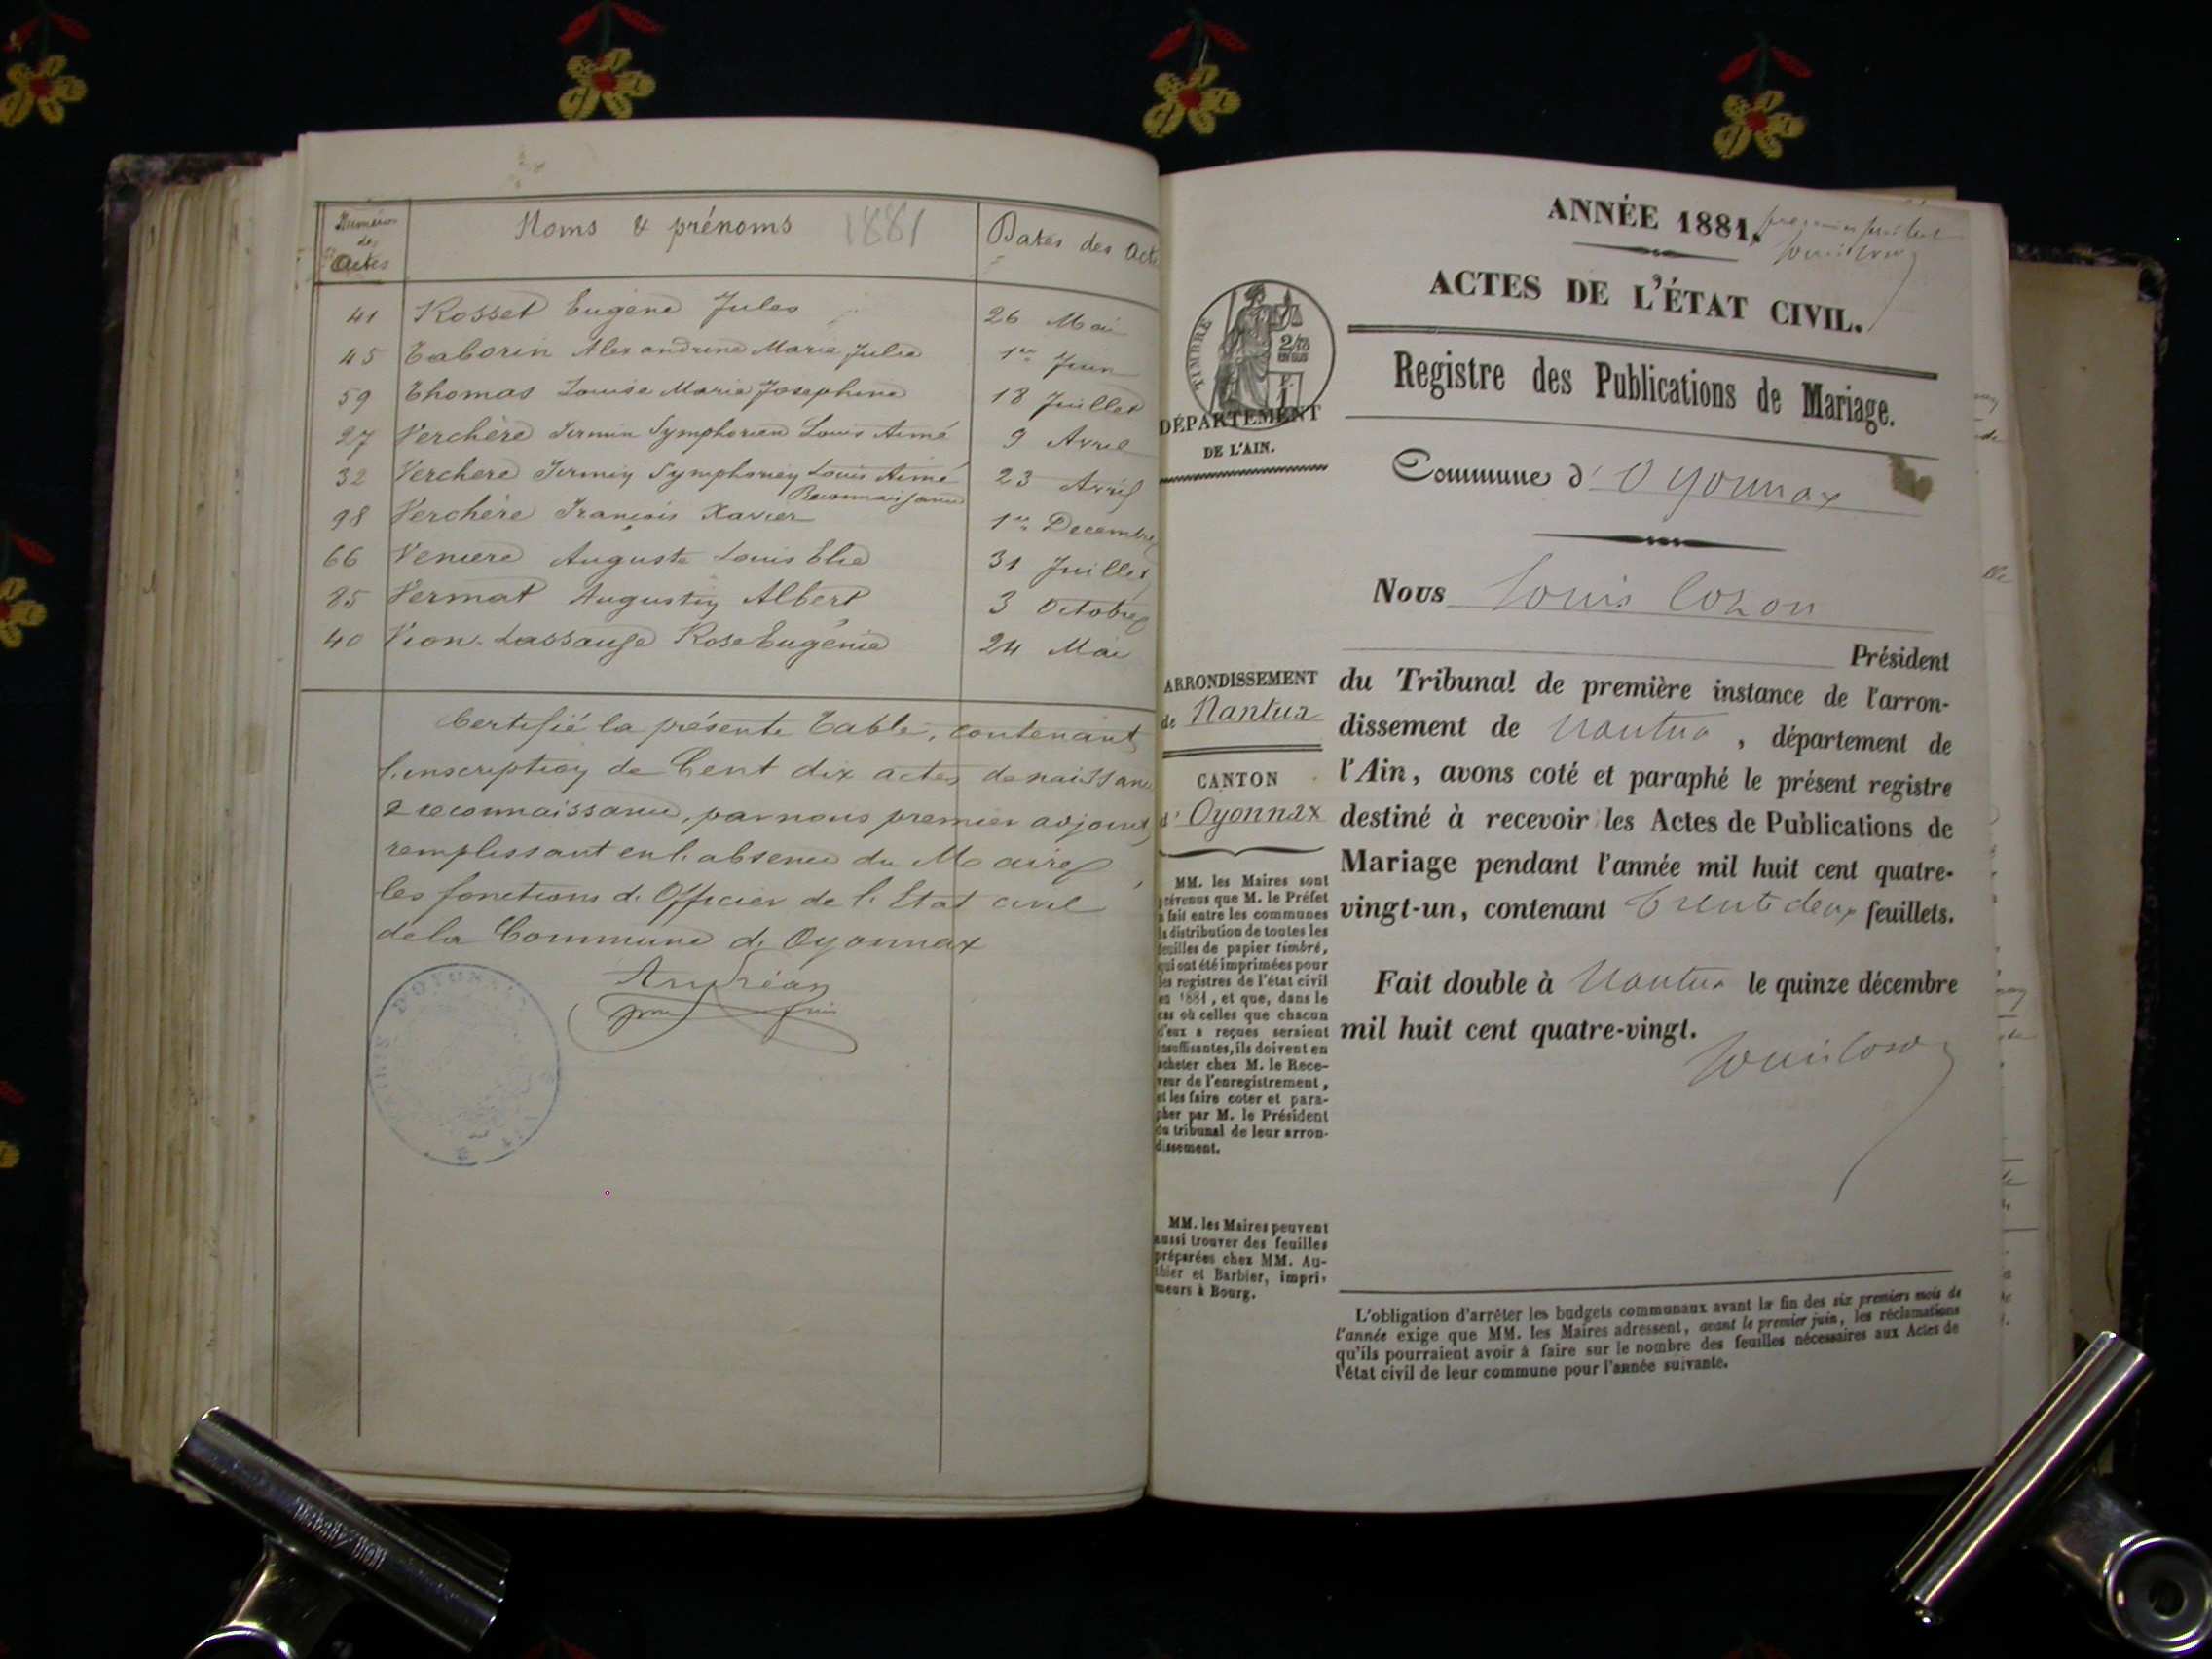 Numéros
de
Actes
Noms & prénoms 1881
Dates des Act
41 Rosset Eugène Jules 26 Mai
45 Taborin Alexandrine Marie Julie 1er Juin
59 Thomas Louise Marie Josephine 18 Juillet
27 Verchère Firmin Symphorien Louis Aimé 9 Avril
32 Verchère Firmin Symphorien Louis Aimé 23 Avril
Reconnaissance
98 Verchère François Xavier 1er Decembre
66 Auguste Louis Elie 31 Juillet
85 Vermat Augustin Albert 3 Octobre
40 Vion-Lassause Rose Eugénie 24 Mai
Certifié la présente Table, contenant
l'inscription de Cent dix actes de naissance
& reconnaissance, par nous premier adjoint
remplissant en l'absence du Maire
les fonctions d'Officier de l'Etat civil
de la Commune d'Oyonnax
ANNÉE 1881.
premier feuillet
Louis Cozon
ACTES DE L'ÉTAT CIVIL.
TIMBRE
Registre des Publications de Mariage.
DÉPARTEMENT
DE L'AIN.
Commune d'Oyonnax
Nous Louis Cozon
Président
ARRONDISSEMENT
de Nantua
CANTON
d'Oyonnax
du Tribunal de première instance de l'arron-
dissement de Nantua, département de
l'Ain, avons coté et paraphé le présent registre
destiné à recevoir les Actes de Publications de
Mariage pendant l'année mil huit cent quatre-
vingt-un, contenant Trente deux feuillets.
Fait double à Nantua le quinze décembre
mil huit cent quatre-vingt.
Louis Cozon
MM. les Maires sont
prévenus que M. le Préfet
a fait entre les communes
la distribution de toutes les
feuilles de papier timbré,
qui ont été imprimées pour
les registres de l'état civil
en 1881, et que, dans le
cas où celles que chacun
d'eux a reçues seraient
insuffisantes, ils doivent en
acheter chez M. le Rece-
veur de l'enregistrement,
et les faire coter et para-
pher par M. le Président
du tribunal de leur arron-
dissement.
MM. les Maires peuvent
aussi trouver des feuilles
préparées chez MM. Au-
thier et Barbier, impri-
meurs à Bourg.
L'obligation d'arrêter les budgets communaux avant la fin des six premiers mois de
l'année exige que MM. les Maires adressent, avant le premier juin, les réclamations
qu'ils pourraient avoir à faire sur le nombre des feuilles nécessaires aux Actes de
l'état civil de leur commune pour l'année suivante.